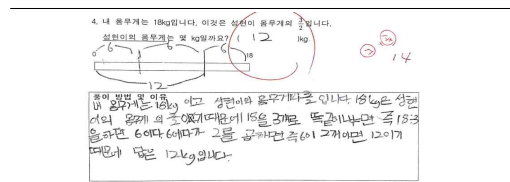 4. 내 몸무게는 18kg입니다. 이것은 성현이 몸무게의 3/2입니다.
성현이의 몸무게는 몇 kg일까요? ( 12 )kg
0 6 6 6 18
12
③ 14
풀이 방법 및 이유
내 몸무게는 18kg 이고 성현이의 몸무게의 입니다. 18kg은 성현
이의 몸무게 의 이기 때문에 18을 3개로 똑같이 나누면 즉 18÷3
을 하면 6이다 6에다가 2를 곱하면 즉 6이 2개이면 12이기
때문에 답은 12kg입니다.